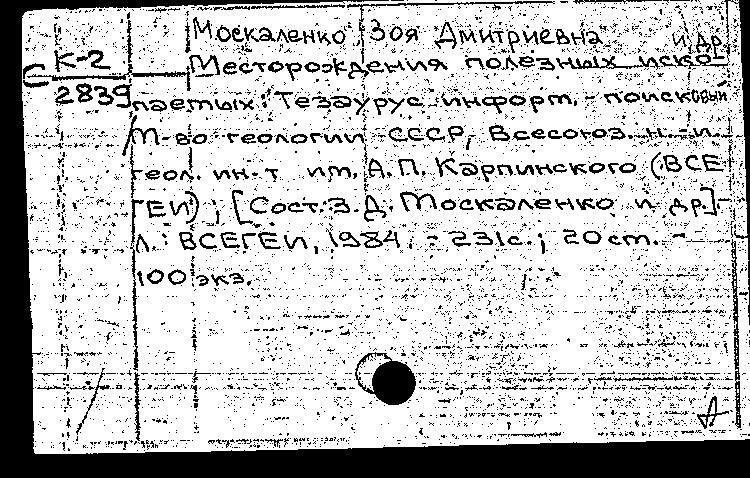 Москаленко, Зоя Дмитриевна и др.
С К-2
2839
Месторождения полезных иско-
паемых: Тезаурус информ.-поисковый
/ М-во геологии СССР, Всесоюз. н.-и.
геол. ин-т им. А.П. Карпинского (ВСЕ
ГЕИ); [Сост. З.Д. Москаленко и др.]-
Л.: ВСЕГЕИ, 1984. - 231с.; 20 см. -
100 экз.